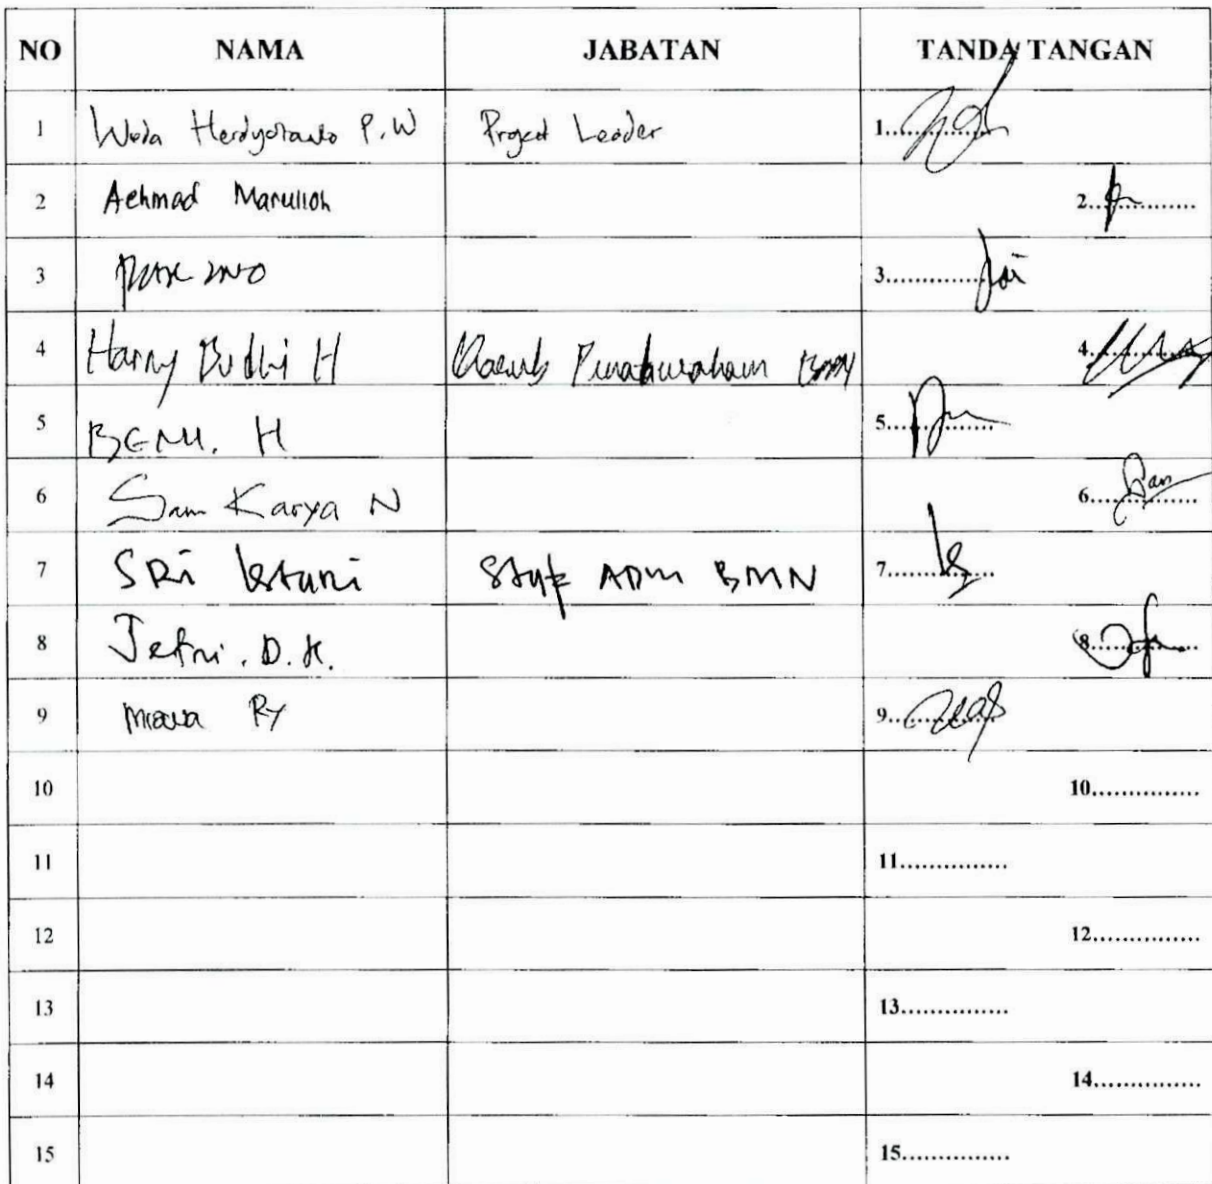 NO NAMA JABATAN TANDA TANGAN
1 Weda Herdyotanto P.W Project Leader 1...............
2 Achmad Marulloh 2...............
3 3...............
4 Harry Budhi H BMN 4...............
5 BENU. H 5...............
6 Sam Karya N 6...............
7 SRi lestari Staf ADM BMN 7...............
8 Jefri. D. K. 8...............
9 RY 9...............
10 10...............
11 11...............
12 12...............
13 13...............
14 14...............
15 15...............